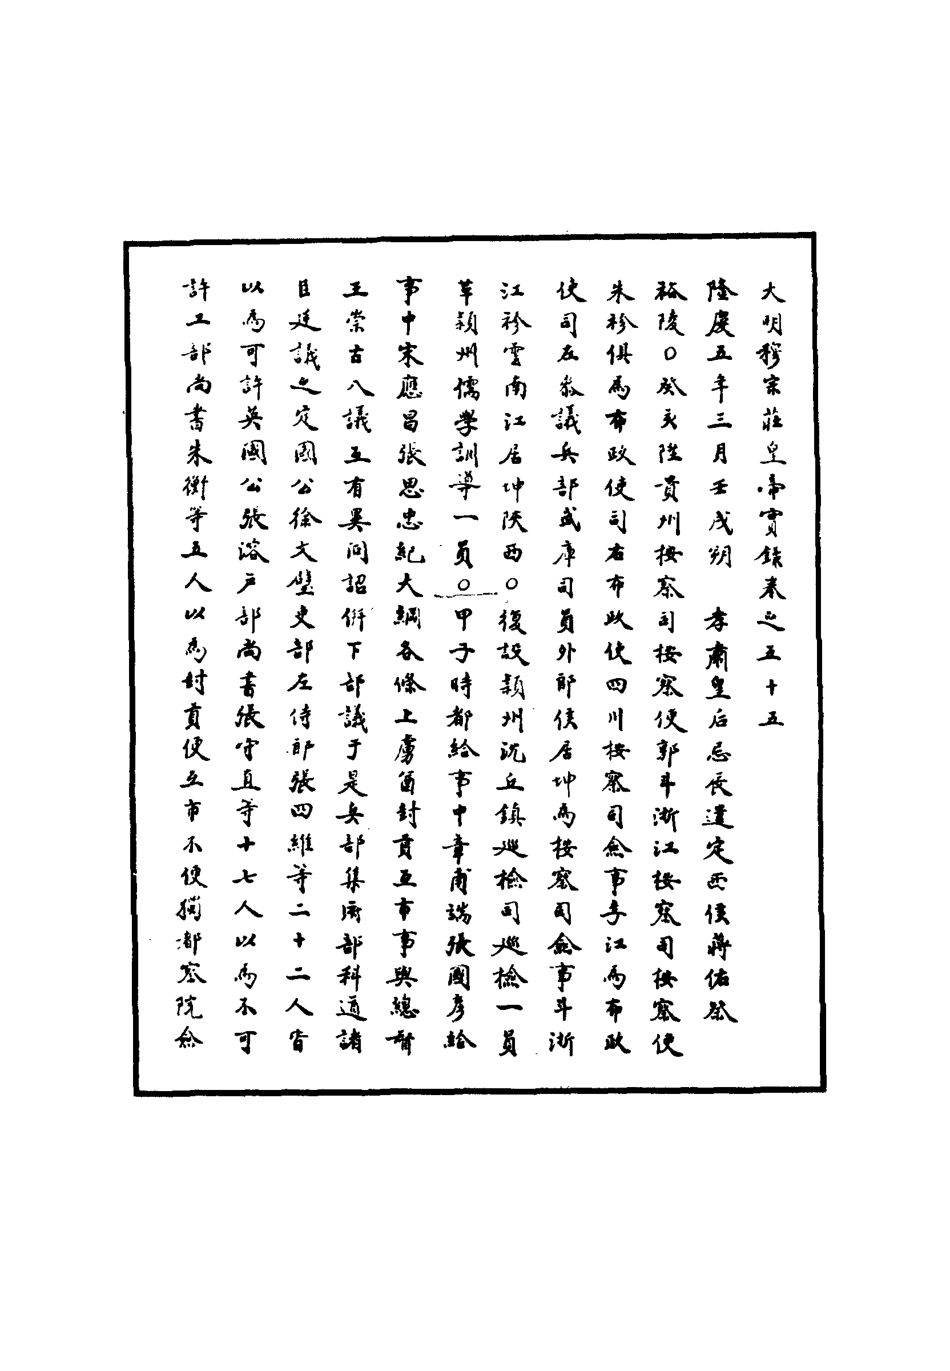 大明穆宗莊皇帝實錄卷之五十五
隆慶五年三月壬戌朔　孝肅皇后忌辰遣定西侯蔣佑祭
裕陵○癸亥陞貴州按察司按察使郭斗浙江按察司按察使
朱衿俱為布政使司右布政使四川按察司僉事李江為布政
使司左叅議兵部武庫司員外郎侯居坤為按察司僉事斗浙
江衿雲南江居坤陝西○復設潁州沈丘鎮巡檢司巡檢一員
革潁州儒學訓導一員○甲子時都給事中章甫端張國彥給
事中宋應昌張思忠紀大綱各條上虜酋封貢互市事與總督
王崇古八議互有異同詔併下部議于是兵部集府部科道諸
臣廷議之定國公徐文璧吏部左侍郎張四維等二十二人皆
以為可許英國公張溶戶部尚書張守直等十七人以為不可
許工部尚書朱衡等五人以為封貢便互市不便獨都察院僉